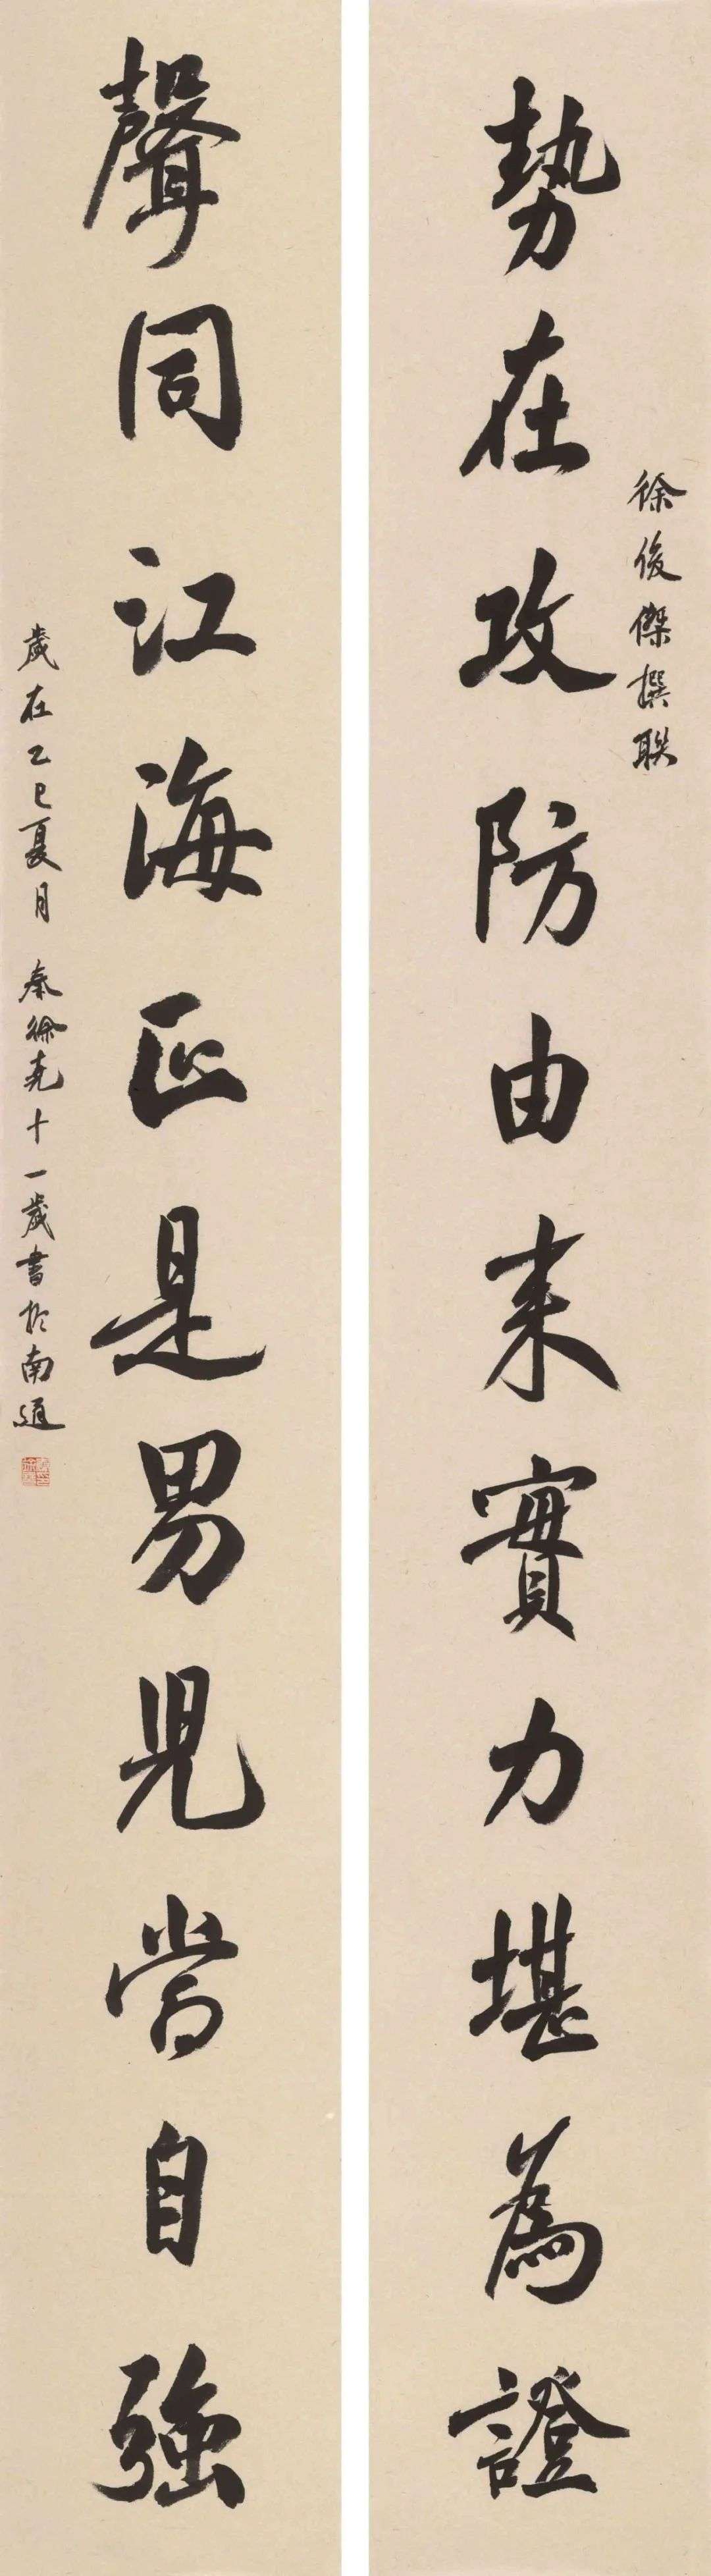 徐俊傑撰聯
勢在攻防由来實力堪為證
聲同江海正是男兒當自強
歲在乙巳夏月 秦徐堯十一歲書於南通